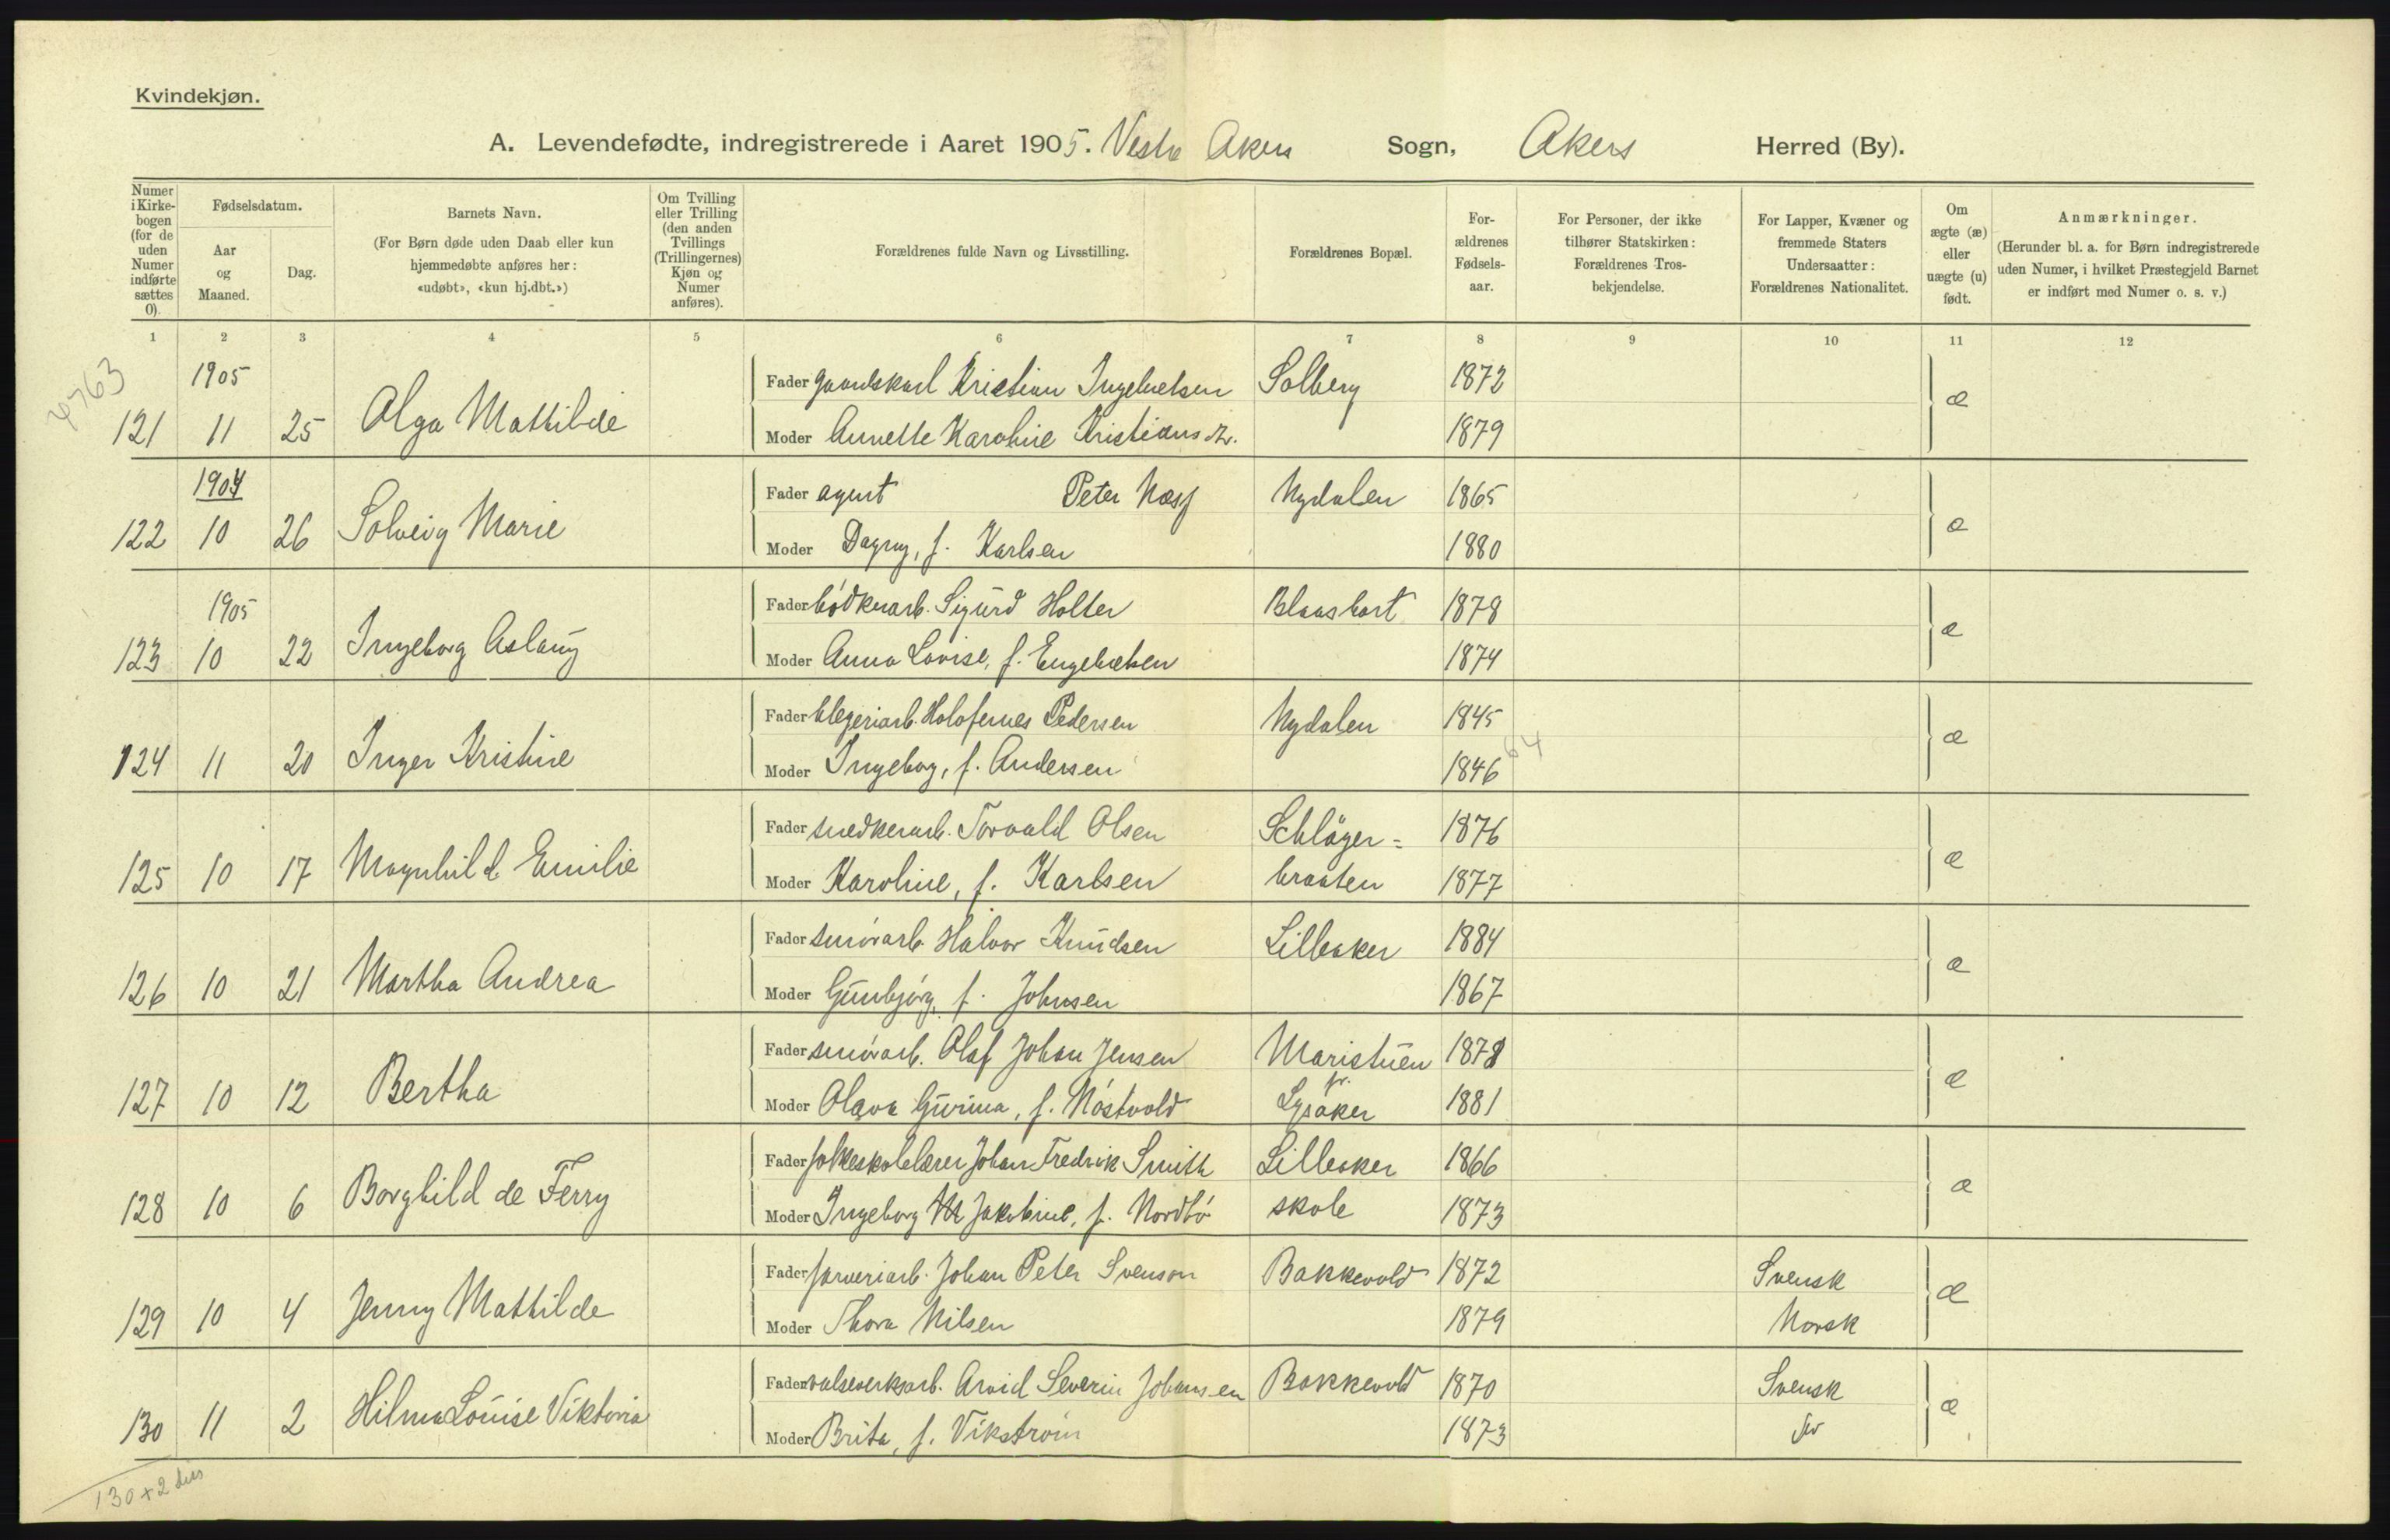 Kvindekjøn.
A. Levendefødte, indregistrerede i Aaret 1905. Vestre Akers Sogn, Akers Herred (By).
Numer i Kirkebogen (for de uden Numer indførte sættes 0).
Fødselsdatum.
Aar og Maaned.
Dag.
Barnets Navn.
(For Børn døde uden Daab eller kun hjemmedøbte anføres her: «udøbt», «kun hj.dbt.»)
Om Tvilling eller Trilling (den anden Tvillings (Trillingernes) Kjøn og Numer anføres).
Forældrenes fulde Navn og Livsstilling.
Forældrenes Bopæl.
Forældrenes Fødselsaar.
For Personer, der ikke tilhører Statskirken: Forældrenes Trosbekjendelse.
For Lapper, Kvæner og fremmede Staters Undersaatter: Forældrenes Nationalitet.
Om ægte (æ) eller uægte (u) født.
Anmærkninger.
(Herunder bl. a. for Børn indregistrerede uden Numer, i hvilket Præstegjeld Barnet er indført med Numer o. s. v.)
1 2 3 4 5 6 7 8 9 10 11 12
4763
1905 Fader gaardskarl Kristian Ingebretsen Solberg 1872
121 11 25 Olga Mathilde Moder Annette Karoline Kristians dr. 1879 æ
1904 Fader agent Peter Næss Nydalen 1865
122 10 26 Solveig Marie Moder Dagny, f. Karlsen 1880 æ
1905 Fader bødkerarb. Sigurd Holter Blaasbort 1878
123 10 22 Ingeborg Aslaug Moder Anna Lovise, f. Engebretsen 1874 æ
Fader blegeriarb. Holofernes Pedersen Nydalen 1845
124 11 20 Inger Kristine Moder Ingeborg, f. Andersen 1846 64 æ
Fader snedkerarb. Torvald Olsen Schläger= 1876
125 10 17 Magnhild Emilie Moder Karoline, f. Karlsen braaten 1877 æ
Fader smørarb. Halvor Knudsen Lilleaker 1884
126 10 21 Martha Andrea Moder Gunbjørg, f. Johnsen 1867 æ
Fader smørarb. Olaf Johan Jensen Maristuen 1878
127 10 12 Bertha Moder Olava Gurina, f. Nøstvold pr. Lysaker 1881 æ
Fader folkeskolelærer Johan Fredrik Smith Lilleaker 1866
128 10 6 Borghild de Ferry Moder Ingeborg M Jakobine, f. Nordbø skole 1873 æ
Fader farveriarb. Johan Peter Svenson Bakkevold 1872 Svensk
129 10 4 Jenny Mathilde Moder Thora Nilsen 1879 Norsk æ
Fader valseverksarb. Arvid Severin Johansen Bakkevold 1870 Svensk
130 11 2 Hilma Louise Viktoria Moder Brita, f. Vikstrøm 1873 Sv æ
130 + 2